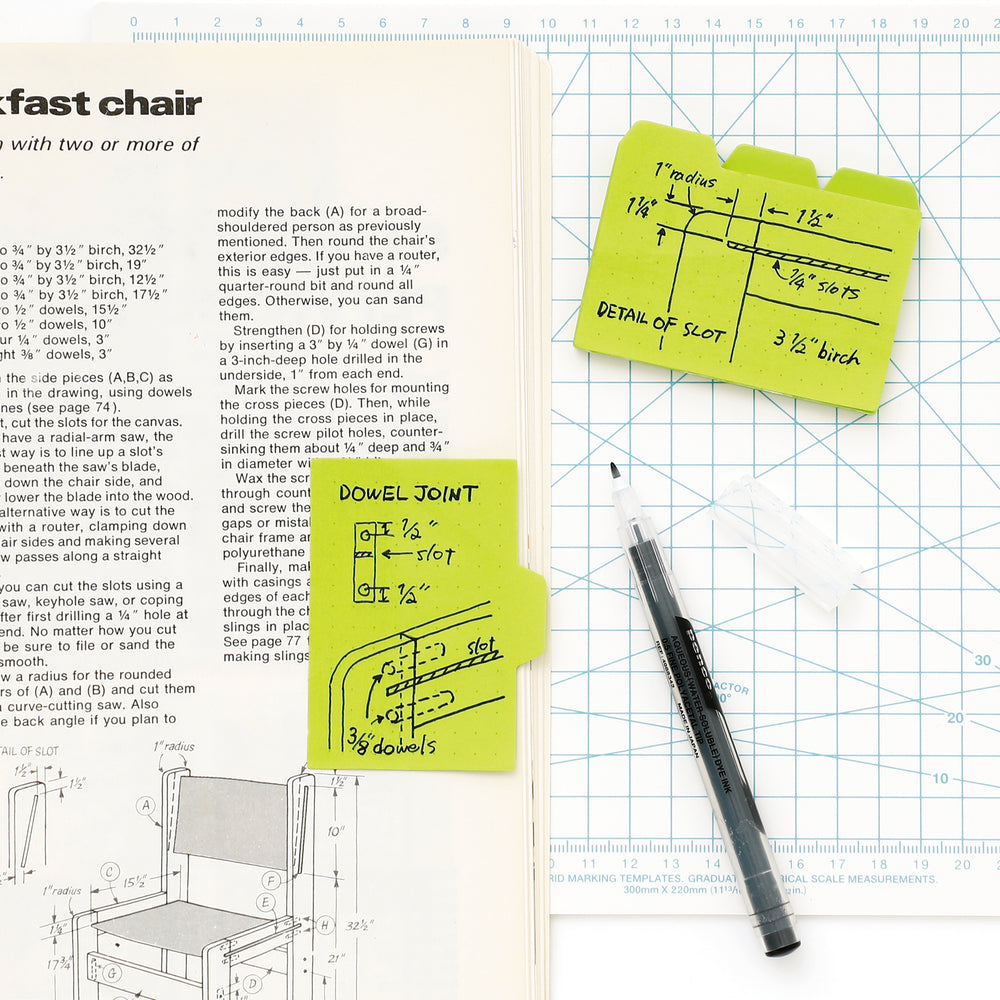 0 1 2 3 4 5 6 7 8 9 10 11 12 13 14 15 16 17 18 19 20
fast chair
with two or more of
¾″ by 3½″ birch, 32½″
¾″ by 3½″ birch, 19″
¾″ by 3½″ birch, 12½″
¾″ by 3½″ birch, 17½″
½″ dowels, 15½″
½″ dowels, 10″
¼″ dowels, 3″
⅜″ dowels, 3″
the side pieces (A,B,C) as
in the drawing, using dowels
(see page 74).
cut the slots for the canvas.
have a radial-arm saw, the
way is to line up a slot's
beneath the saw's blade,
down the chair side, and
lower the blade into the wood.
alternative way is to cut the
with a router, clamping down
sides and making several
passes along a straight
you can cut the slots using a
saw, keyhole saw, or coping
first drilling a ¼″ hole at
end. No matter how you cut
be sure to file or sand the
smooth.
a radius for the rounded
of (A) and (B) and cut them
curve-cutting saw. Also
back angle if you plan to
modify the back (A) for a broad-
shouldered person as previously
mentioned. Then round the chair's
exterior edges. If you have a router,
this is easy — just put in a ¼″
quarter-round bit and round all
edges. Otherwise, you can sand
them.
Strengthen (D) for holding screws
by inserting a 3″ by ¼″ dowel (G) in
a 3-inch-deep hole drilled in the
underside, 1″ from each end.
Mark the screw holes for mounting
the cross pieces (D). Then, while
holding the cross pieces in place,
drill the screw pilot holes, counter-
sinking them about ¼″ deep and ¾″
in diameter
Wax the
through
and screw the
gaps or
chair frame
polyurethane
Finally,
with casings
edges of each
through the
slings in
See page 77
making slings
OF SLOT
1½″
1½″
1″ radius
A
C
15½″
1″ radius
1¼″
17¾″
G
D
E
F
H
1½″
10″
32½″
21″
DOWEL JOINT
½″
slot
½″
slot
3/8″ dowels
1″ radius
1¼″
1½″
¼″ slots
DETAIL OF SLOT
3 ½″ birch
AQUEOUS (WATER-SOLUBLE) DYE INK
MADE IN JAPAN
30
20
10
10 11 12 13 14 17 18 19 20
GRID MARKING TEMPLATES. SCALE MEASUREMENTS.
300mm X 220mm